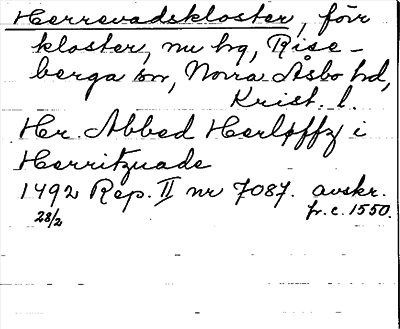 Herrevadskloster, förr
kloster, nu hg, Rise-
berga sn, Norra Åsbo hd,
Krist. l.
Hr. Abbed Herloffz i
Herritzuade
1492 Rep. II nr 7087. avskr.
28/2 fr. c. 1550.